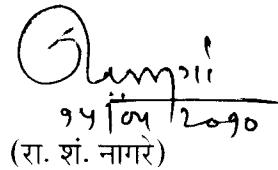 १५/०५/२०१०
(रा. शं. नागरे)